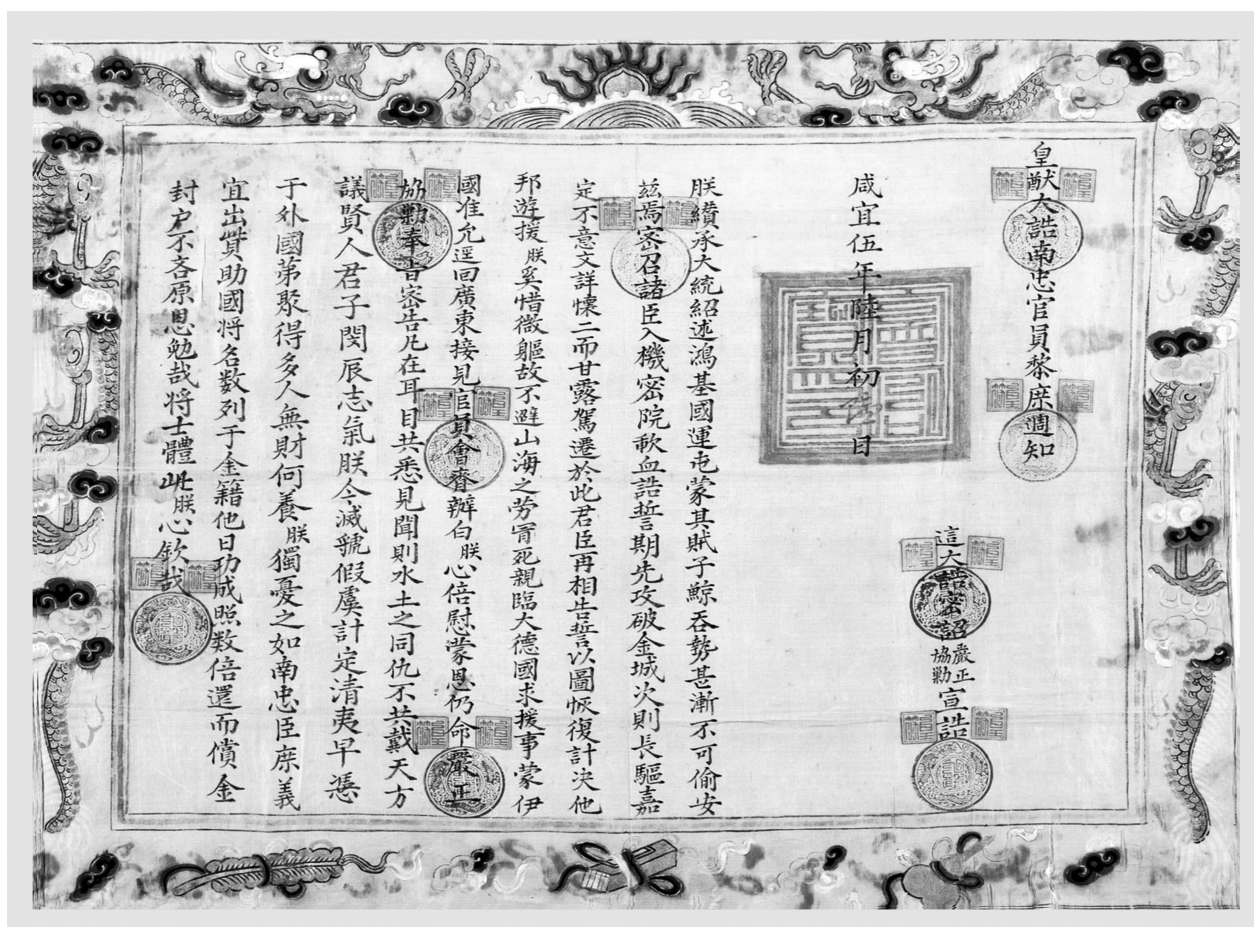 皇猷大誥南忠官員黎庶週知
這大誥密詔嚴正協勷宣誥
咸宜伍年陸月初日
朕纘承大統紹述鴻基國運屯蒙其賊子鯨吞勢甚漸不可偷安
茲焉密召諸臣入機密院歃血誥誓期先攻破金城次則長驅嘉
定不意文詳懷二而甘露駕遷於此君臣再相告誓以圖恢復計决他
邦遊援朕奚惜微軀故不避山海之劳冐死親臨大德國求援事蒙伊
國准允逕回廣東接見官員會齊辦白朕心倍慰蒙恩仍命嚴正
協勷奉旨密告凡在耳目共悉見聞則水土之同仇不共戴天方
議賢人君子閔辰志氣朕今滅虢假虞計定清夷早慿
于外國苐聚得多人無財何養朕獨憂之如南忠臣庶義
宜出貲助國將名数列于金籍他日功成照数倍還而償金
封户不吝原恩勉哉将士體此朕心欽哉